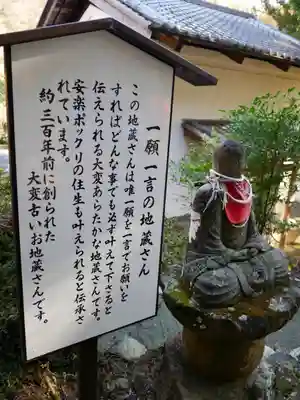 一願一言の地蔵さん
この地蔵さんは唯一願を一言でお願いを
すればどんな事でも必ず叶えて下さると
伝えられる大変あらたかな地蔵さんです。
安楽ポックリの往生も叶えられると伝承さ
れています。
約三百年前に創られた
大変古いお地蔵さんです。